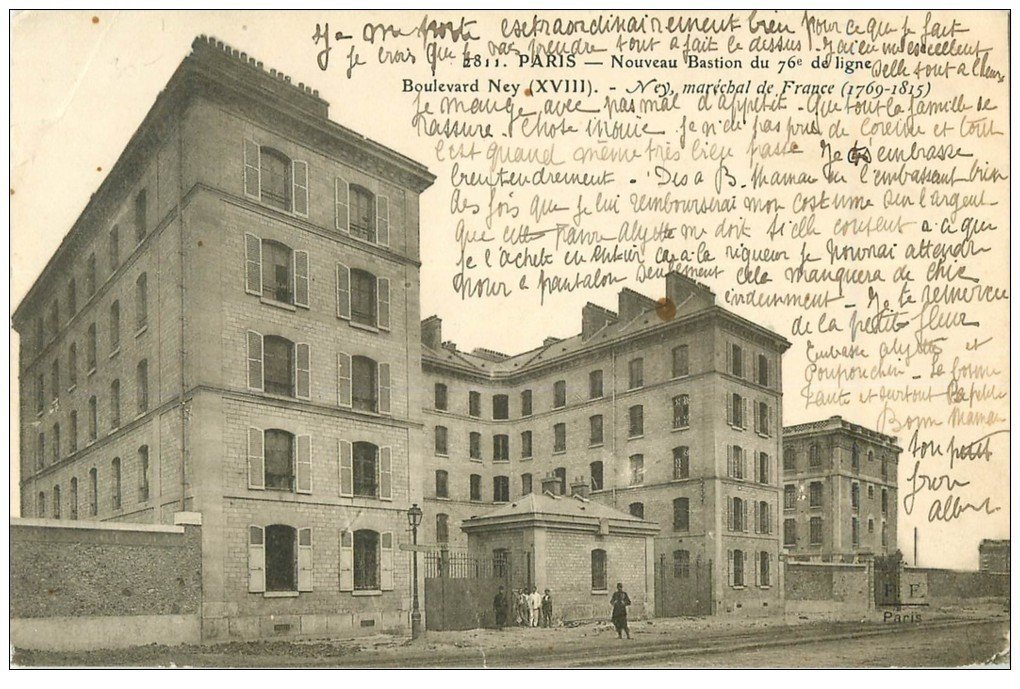 Je me porte extraordinairement bien pour ce que je fait
je crois que je vas prendre tout a fait le dessus. J'ai eu un excellent
2811. PARIS — Nouveau Bastion du 76e de ligne
selle tout a l'heure
Boulevard Ney (XVIII). - Ney, maréchal de France (1769-1815)
Je mange avec pas mal d'appetit. Que tout la famille se
rassure. Chose inouie je n'ai pas pris de et tout
c'est quand même très bien passé Je t'embrasse
bien tendrement - Dis a B. Maman en l'embrassant bien
des fois que je lui rembourserai mon costume sur l'argent
que cette pauvre Alyette me doit si elle consent a ci que
je l'achete en entier car a la rigueur je pourrai attendre
pour a pantalon seulement cela manquera de chic
évidemment - Je te remercie
de la petite fleur
Embrasse Alyette et
Poupouchin - La bonne
tante et surtout la petite
Bonne Maman
ton petit
frère
Albert
E. F.
Paris